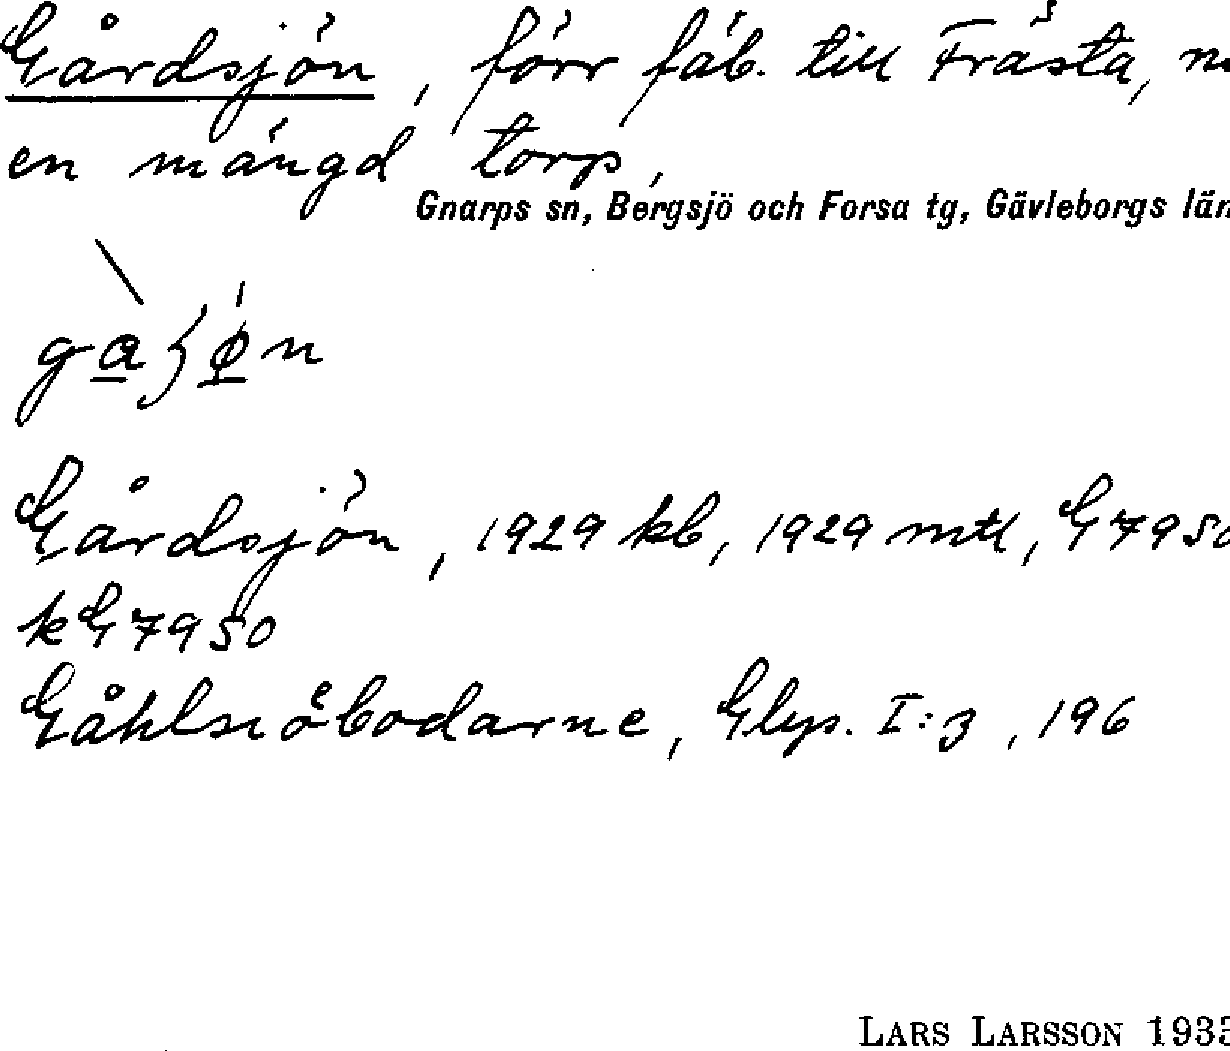 Gårdsjön, förr fäb. till Frästa, n
en mängd torp,
Gnarps sn, Bergsjö och Forsa tg, Gävleborgs län
Gårdsjön, 1929 kb, 1929 mtl, G7950
kG7950
Gåhlsiöbodarne, Glys. I:3, 196
LARS LARSSON 1935